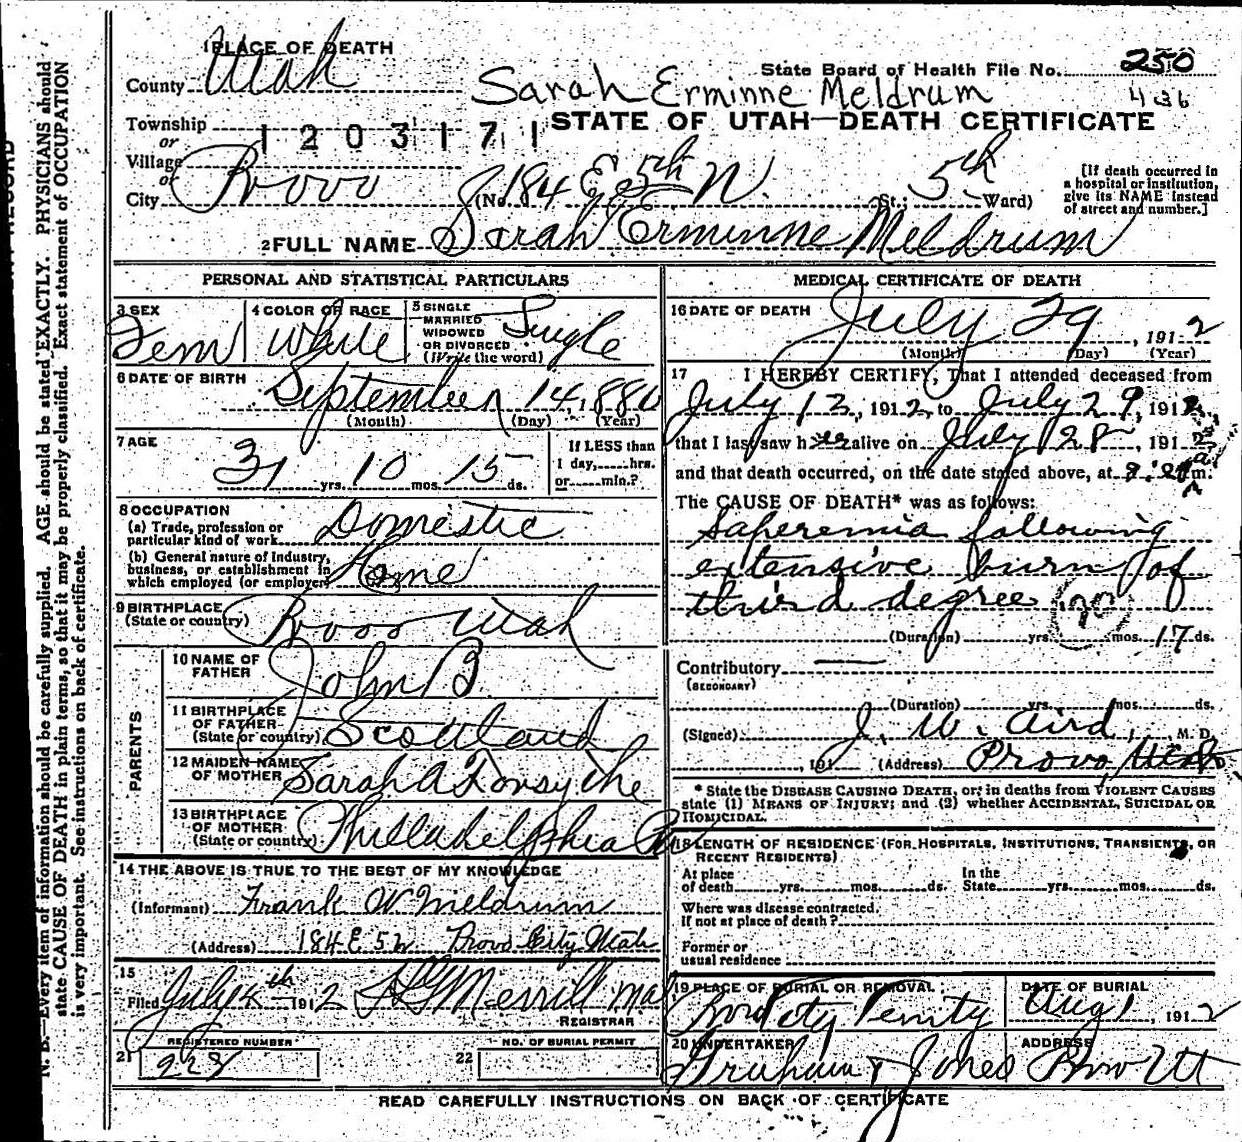 1 PLACE OF DEATH
County Utah
State Board of Health File No. 250
436
Sarah Erminne Meldrum
Township
1203171
STATE OF UTAH—DEATH CERTIFICATE
or
Village
or
City Provo (No. 184 E 5th N. St.; 5th Ward)
[If death occurred in a hospital or institution, give its NAME instead of street and number.]
2 FULL NAME Sarah Erminne Meldrum
PERSONAL AND STATISTICAL PARTICULARS
3 SEX Fem
4 COLOR OR RACE White
5 SINGLE MARRIED WIDOWED OR DIVORCED (Write the word) Single
6 DATE OF BIRTH
September 14, 1880
(Month) (Day) (Year)
7 AGE
31 yrs. 10 mos. 15 ds.
If LESS than 1 day,......hrs. or......min.?
8 OCCUPATION
(a) Trade, profession or particular kind of work Domestic
(b) General nature of Industry, business, or establishment in which employed (or employer) Home
9 BIRTHPLACE
(State or country) Provo Utah
PARENTS
10 NAME OF FATHER John B.
11 BIRTHPLACE OF FATHER (State or country) Scotland
12 MAIDEN NAME OF MOTHER Sarah A Forsythe
13 BIRTHPLACE OF MOTHER (State or country) Philladelphia Pa
14 THE ABOVE IS TRUE TO THE BEST OF MY KNOWLEDGE
(Informant) Frank W Meldrum
(Address) 184 E 5 N Provo City Utah
15
Filed July th 1912 Merrill
REGISTRAR
21 REGISTERED NUMBER
228
22 NO. OF BURIAL PERMIT
MEDICAL CERTIFICATE OF DEATH
16 DATE OF DEATH July 29, 1912
(Month) (Day) (Year)
17 I HEREBY CERTIFY, That I attended deceased from
July 12, 1912, to July 29, 1912,
that I last saw her alive on July 28, 191
and that death occurred, on the date stated above, at m.
The CAUSE OF DEATH* was as follows:
Saperemia following
extensive burn of
third degree
(Duration) yrs. mos. 17 ds.
Contributory —
(SECONDARY)
(Duration) yrs. mos. ds.
(Signed) J. W. Aird, M. D.
, 191 (Address) Provo, Utah
* State the DISEASE CAUSING DEATH, or, in deaths from VIOLENT CAUSES
state (1) MEANS OF INJURY; and (2) whether ACCIDENTAL, SUICIDAL OR
HOMICIDAL.
18 LENGTH OF RESIDENCE (FOR HOSPITALS, INSTITUTIONS, TRANSIENTS, OR
RECENT RESIDENTS)
At place of death yrs. mos. ds. In the State yrs. mos. ds.
Where was disease contracted,
If not at place of death?
Former or
usual residence
19 PLACE OF BURIAL OR REMOVAL
Provo City
DATE OF BURIAL
Aug 1, 1912
20 UNDERTAKER
Graham & Jones
ADDRESS
Prov Ut
READ CAREFULLY INSTRUCTIONS ON BACK OF CERTIFICATE
N. B.—Every item of information should be carefully supplied. AGE should be stated EXACTLY. PHYSICIANS should
state CAUSE OF DEATH in plain terms, so that it may be properly classified. Exact statement of OCCUPATION
is very important. See instructions on back of certificate.